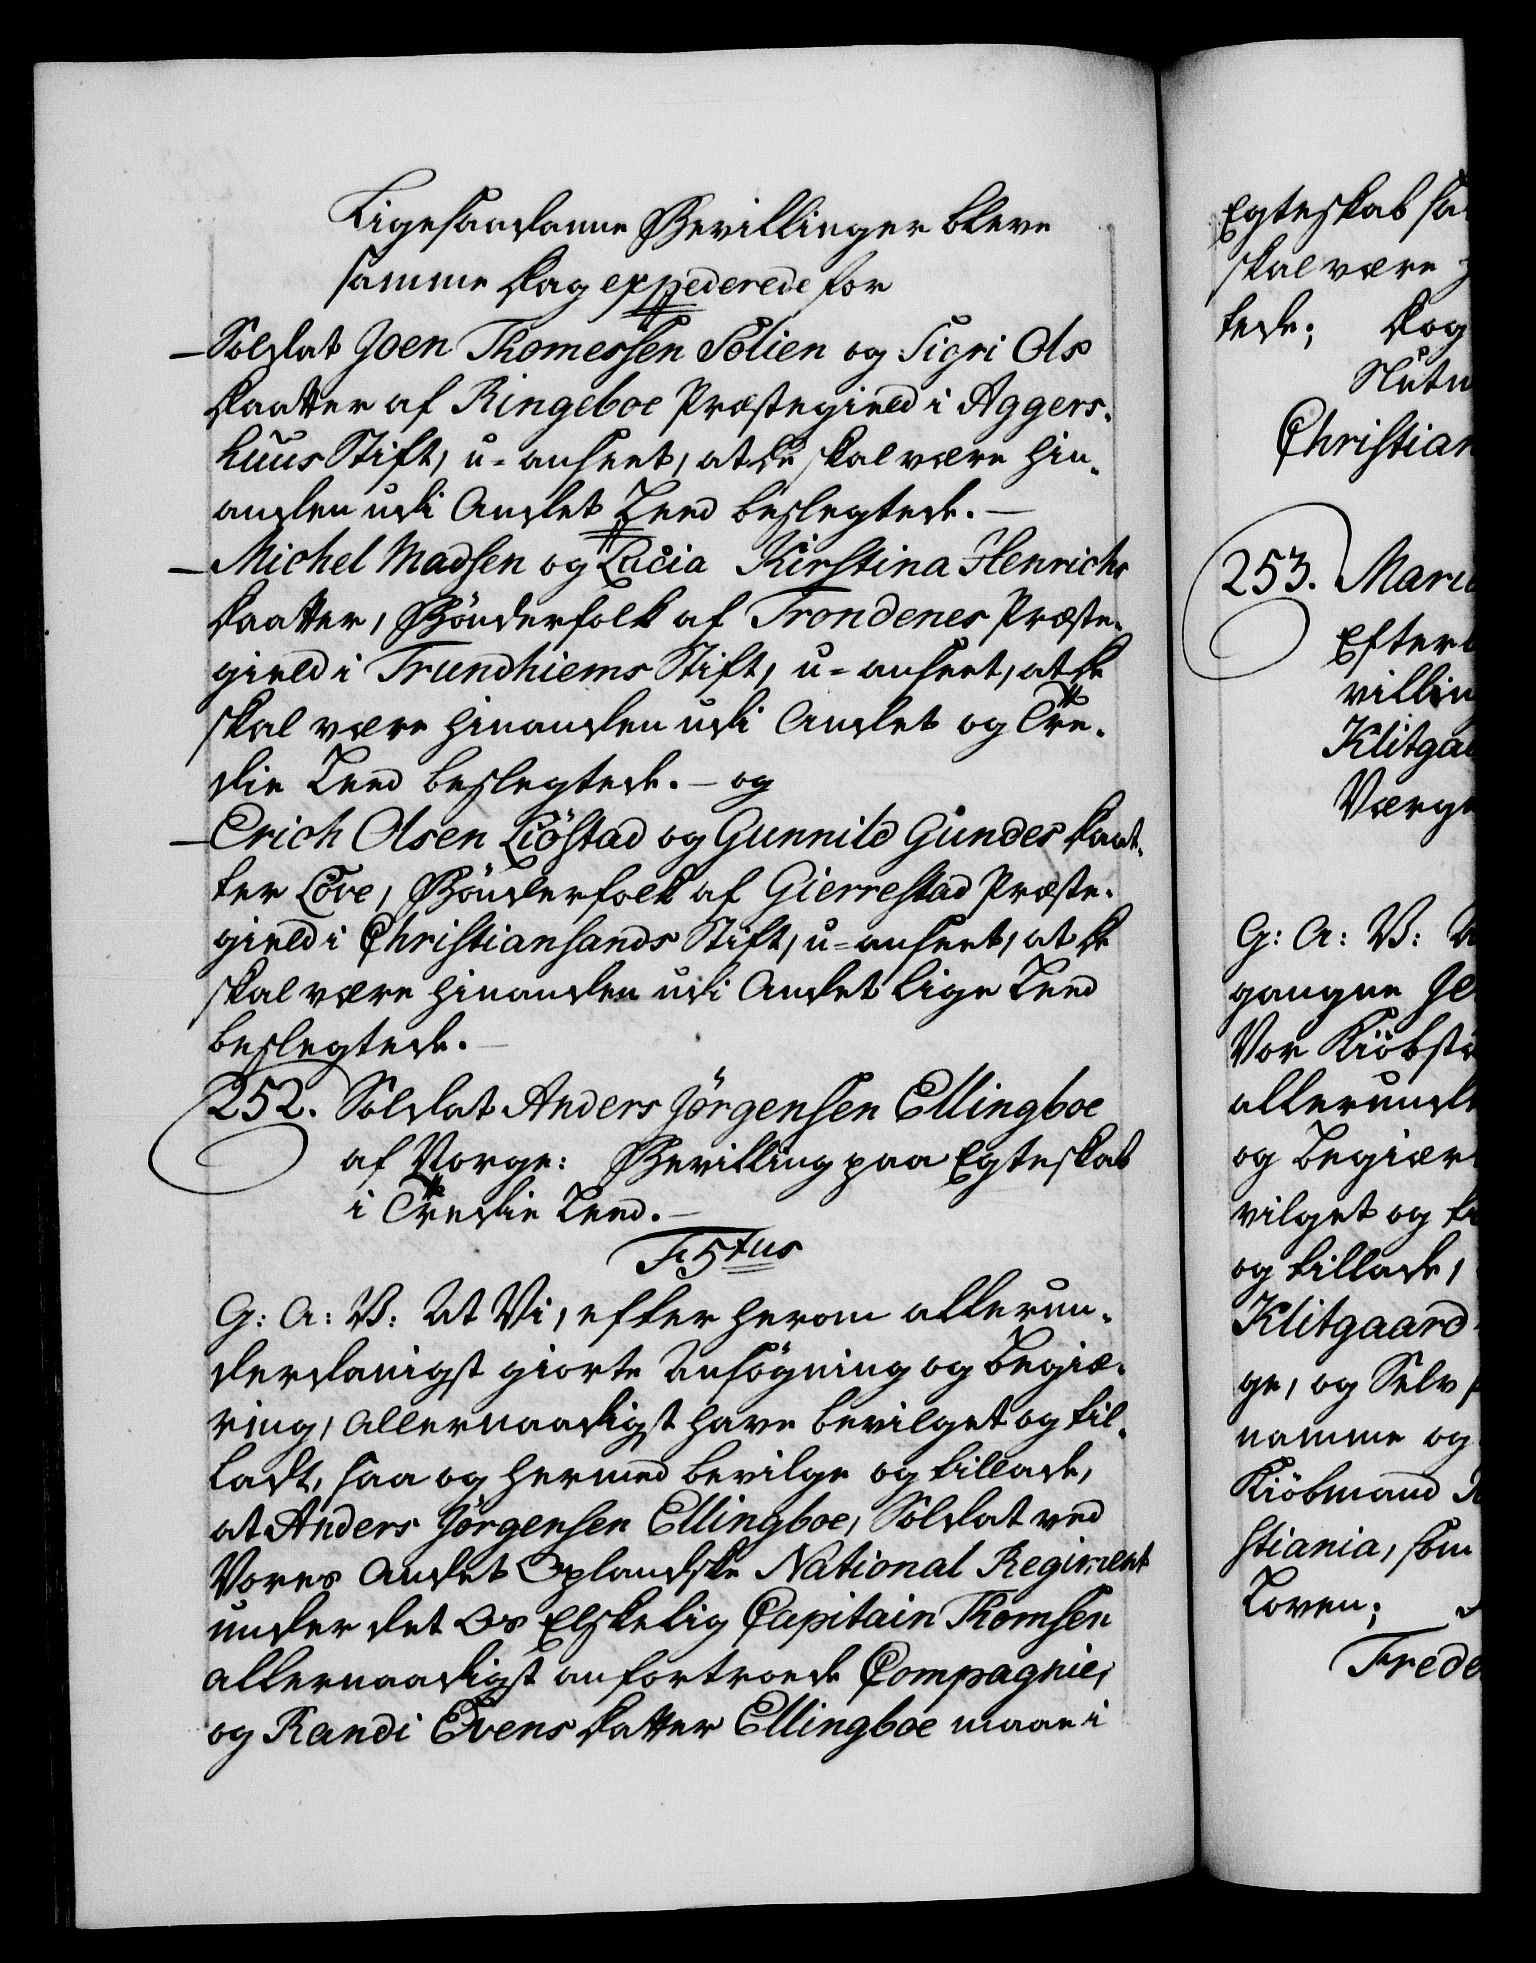 Ligesaadanne Bevillinger bleve
samme Dag expederede for
— Soldat Joen Thomessen Solien og Sigri Ols
Daatter af Ringeboe Præstegield i Aggers-
huus Stift, u-anseet, at de skal være hin-
anden udi Andet Leed beslegtede. —
— Michel Madsen og Lucia Kirstina Henrichs
Daatter, Bönderfolk af Trondenes Præste-
gield i Trundhiems Stift, u-anseet, at de
skal være hinanden udi Andet og Tre-
die Leed beslegtede. — og
— Erich Olsen Liöstad og Gunnild Gundes Daat-
ter Löve, Bönderfolk af Gierrestad Præste-
gield i Christiansands Stift, u-anseet, at de
skal være hinanden udi Andet lige Leed
beslegtede. —
252. Soldat Anders Jörgensen Ellingboe
af Norge: Bevilling paa Egteskab
i Tredie Leed. —
F: 5tus
G: A: V: At Vi, efter herom allerun-
derdanigst giorte Ansögning og Begiæ-
ring, Allernaadigst have bevilget og til-
ladt, saa og hermed bevilge og tillade,
at Anders Jörgensen Ellingboe, Soldat ved
Vores Andet Oplandske National Regiment
under det Os Elskelig Capitain Thomsen
allernaadigst anfortroede Compagnie,
og Randi Evens Datter Ellingboe maae i
Egteskab
skal være
tede; Dog
Christian
253.
Efter
villin
Klitga
Værge
G: A: V:
gangne
Vor Kiöbstæ
allerunde
og Begiær
vilget og
og tillade,
Klitgaard
ge, og Selv
namme og
Kiöbmand
stiania, som
Loven;
Frede